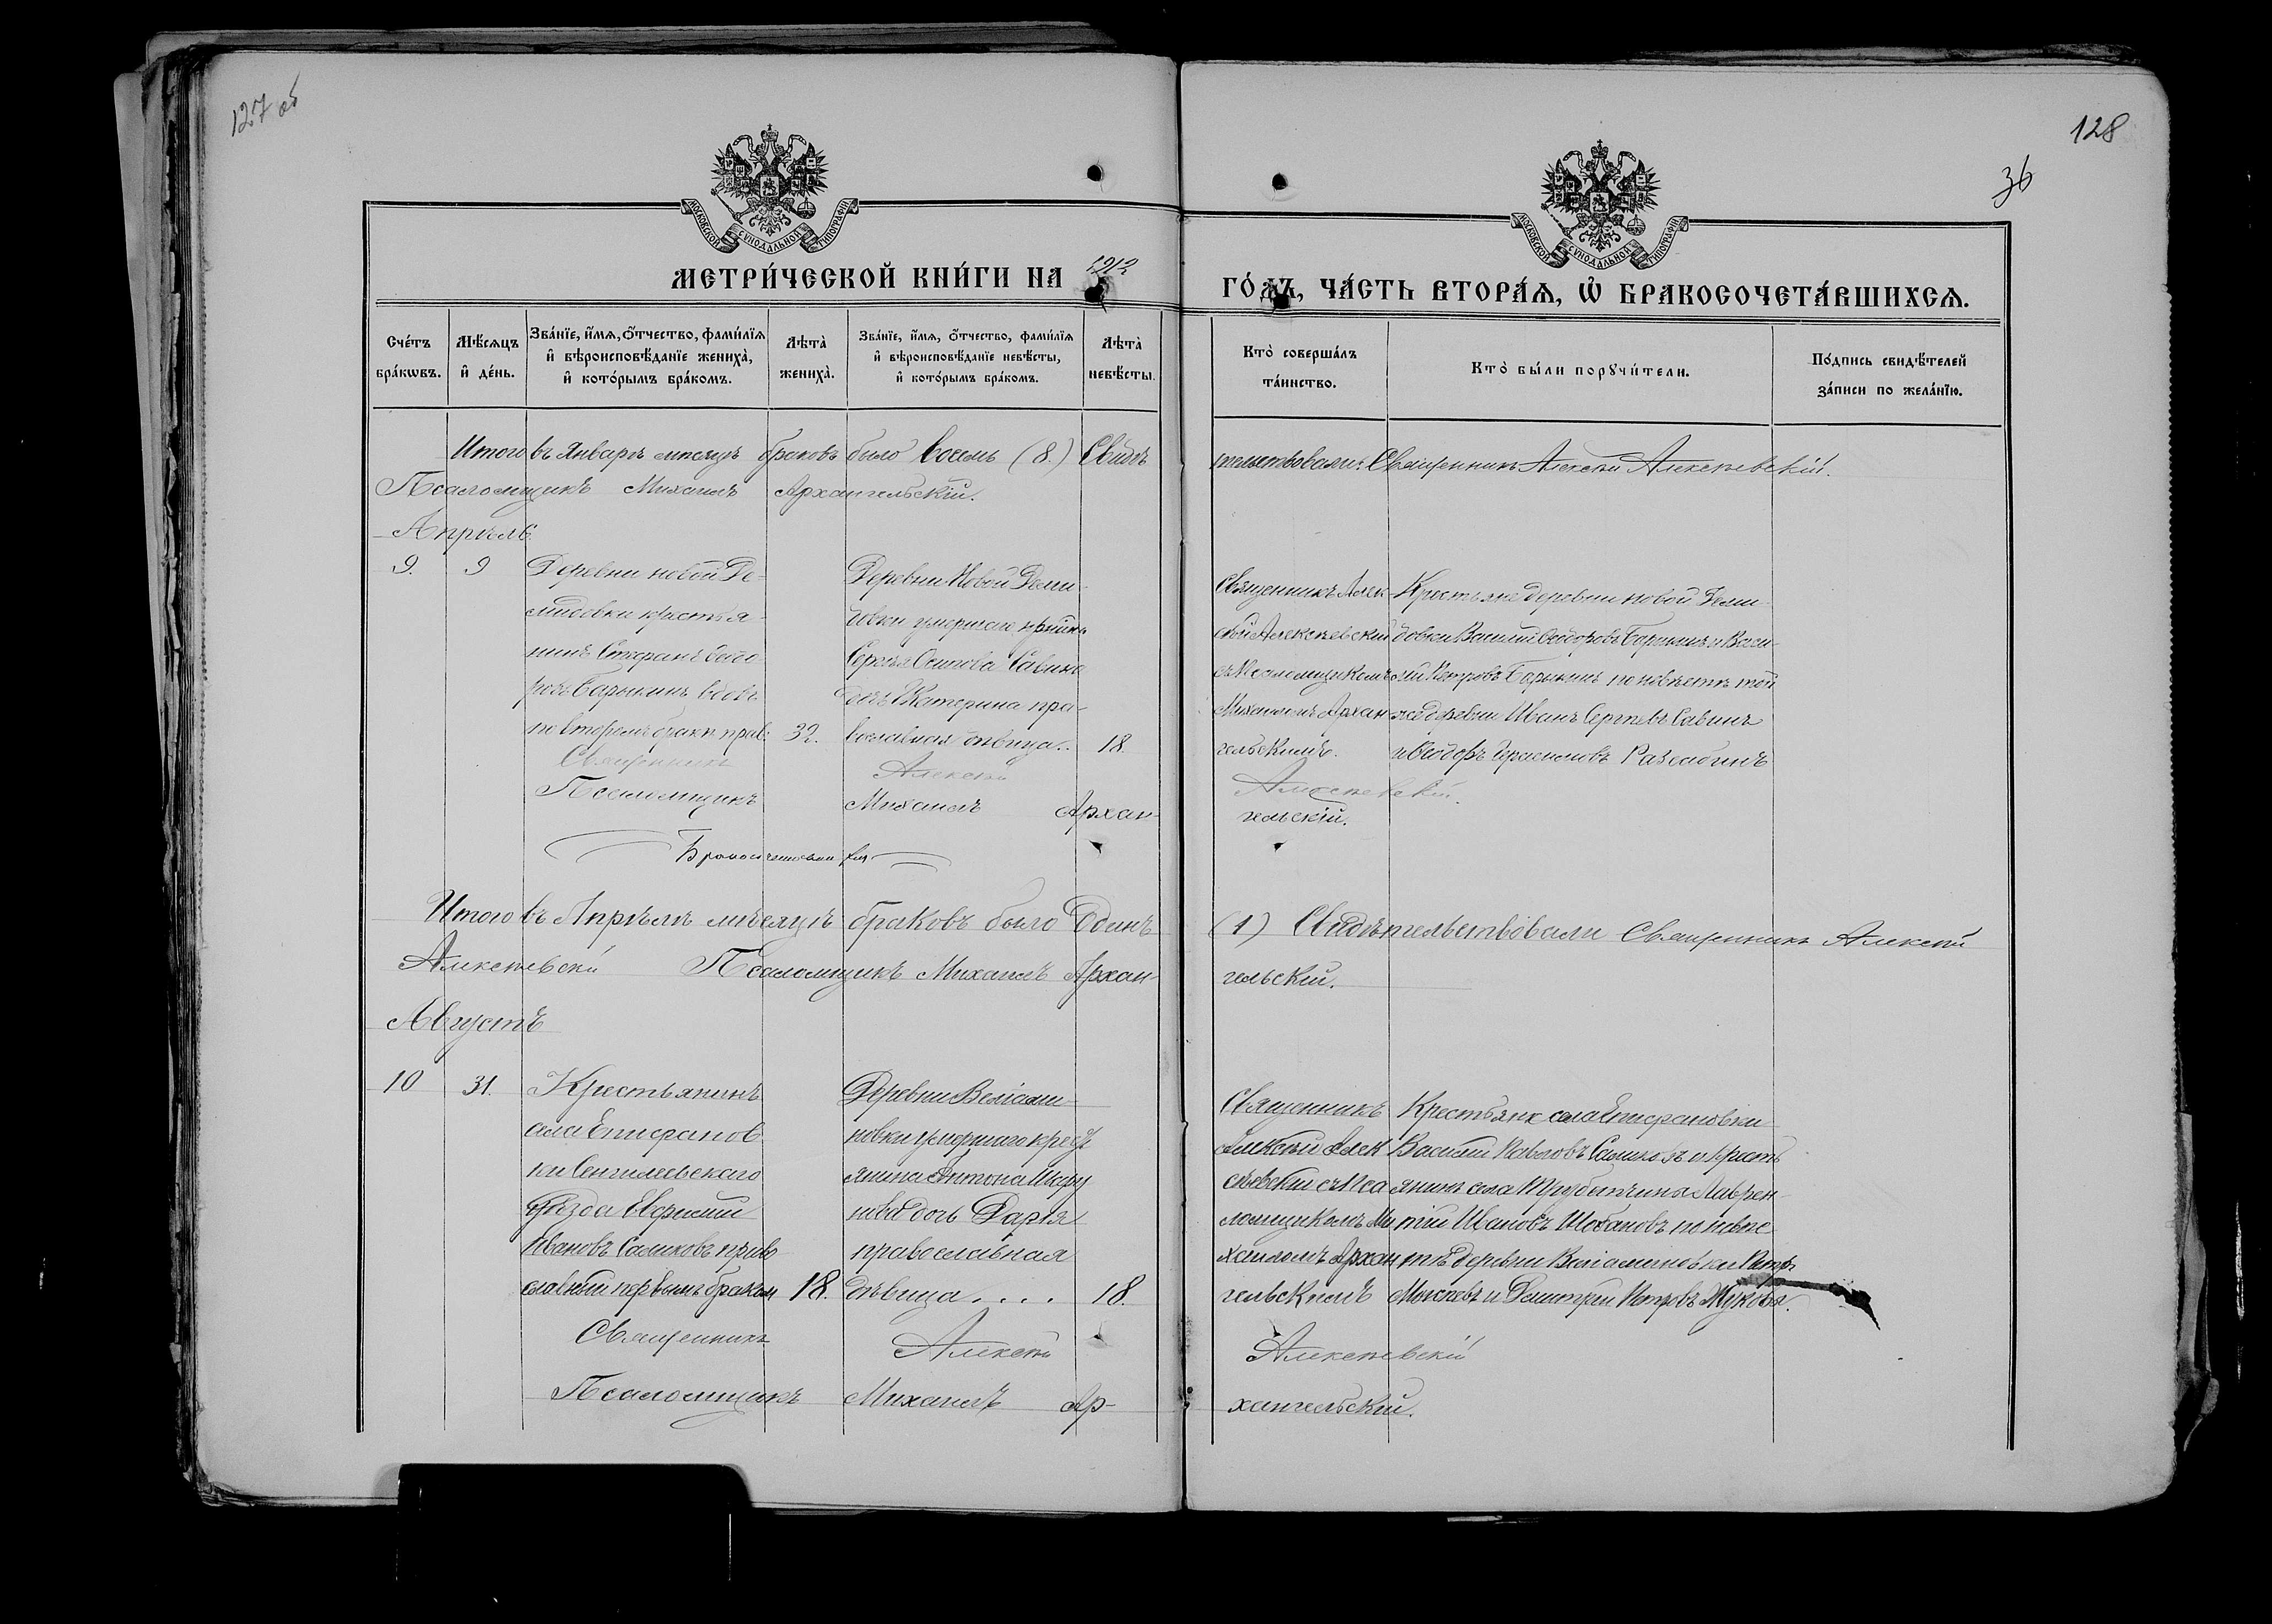 127 об
128
36
МОСКОВСКОЙ СѴНОДАЛЬНОЙ ТИПОГРАФІИ
МОСКОВСКОЙ СѴНОДАЛЬНОЙ ТИПОГРАФІИ
МЕТРИ́ЧЕСКОЙ КНИ́ГИ НА 1912
ГО́ДЪ, ЧА́СТЬ ВТОРА́Ѧ, Ѽ БРАКОСОЧЕТА́ВШИХСѦ.
Сче́тъ бра́кѡвъ.
Мѣ́сѧцъ и҆ де́нь.
Зва́нїе, и҆́мѧ, ѻ҆́тчество, фами́лїѧ
и҆ вѣроисповѣ́данїе жениха̀,
и҆ кото́рымъ бра́комъ.
Лѣ́та̀ жениха̀.
Зва́нїе, и҆́мѧ, ѻ҆́тчество, фами́лїѧ
и҆ вѣроисповѣ́данїе невѣ́сты,
и҆ кото́рымъ бра́комъ.
Лѣ́та̀ невѣ́сты.
Кто̀ соверша́лъ
та́инство.
Кто̀ бы́ли порꙋчи́тели.
По́дпись свидѣ́телей
за́писи по жела́нїю.
Итого въ Январѣ мѣсяцѣ браковъ было восемь (8.) Свидѣ
тельствовали: Священникъ Алексѣй Алексѣевскій.
Псаломщикъ Михаилъ Архангельскій.
Апрѣль
9. 9
Деревни новой Де-
мидовки крестья-
нинъ Стефанъ Ѳедо-
ровъ Барыкинъ вдовъ
по второмъ бракѣ прав. 32.
Деревни Новой Деми-
довки умершаго кр-нина
Сергѣя Осипова Савина
дочь Екатерина пра-
вославная дѣвица.. 18.
Священникъ Алек-
сѣй Алексѣевскій
съ Псаломщикомъ
МихаиломъАрхан-
гельскимъ.
Крестьяне деревни новой Деми-
довки Василій Ѳедоровъ Барыкинъ и Васи-
лій Петровъ Барыкинъ по невѣстѣ той
же деревни Иванъ Сергѣевъ Савинъ
и Ѳедоръ Герасимовъ
Священникъ Алексѣй Алексѣевскій.
Псаломщикъ Михаилъ Архан-
гельскій.
Итого въ Апрѣлѣ мѣсяцѣ браковъ было Одинъ
(1) Свидѣтельствовали Священникъ Алексѣй
Алексѣевскій Псаломщикъ Михаилъ Архан-
гельскій.
Августъ
10 31.
Крестьянинъ
села Епифанов
ки Сенгилеевскаго
уѣзда Евфимій
Ивановъ Салиховъ право
славный первымъ бракомъ 18.
Деревни Веліями-
новки умершаго кресть
янина Антона
дочь Дарья
православная
дѣвица.... 18.
Священникъ
Алексѣй Алек
сѣевскій съ Пса
ломщикомъ Ми
хаиломъ Архан
гельскимъ
Крестьяне села Епифановки
Василій Павловъ и кресть
янинъ села Лаврен
тій Ивановъ по невѣс
тѣ деревни Веліяминовки Петръ
и Димитрій Петровъ Жуковы.
Священникъ Алексѣй Алексѣевскій
Псаломщикъ Михаилъ Ар-
хангельскій.